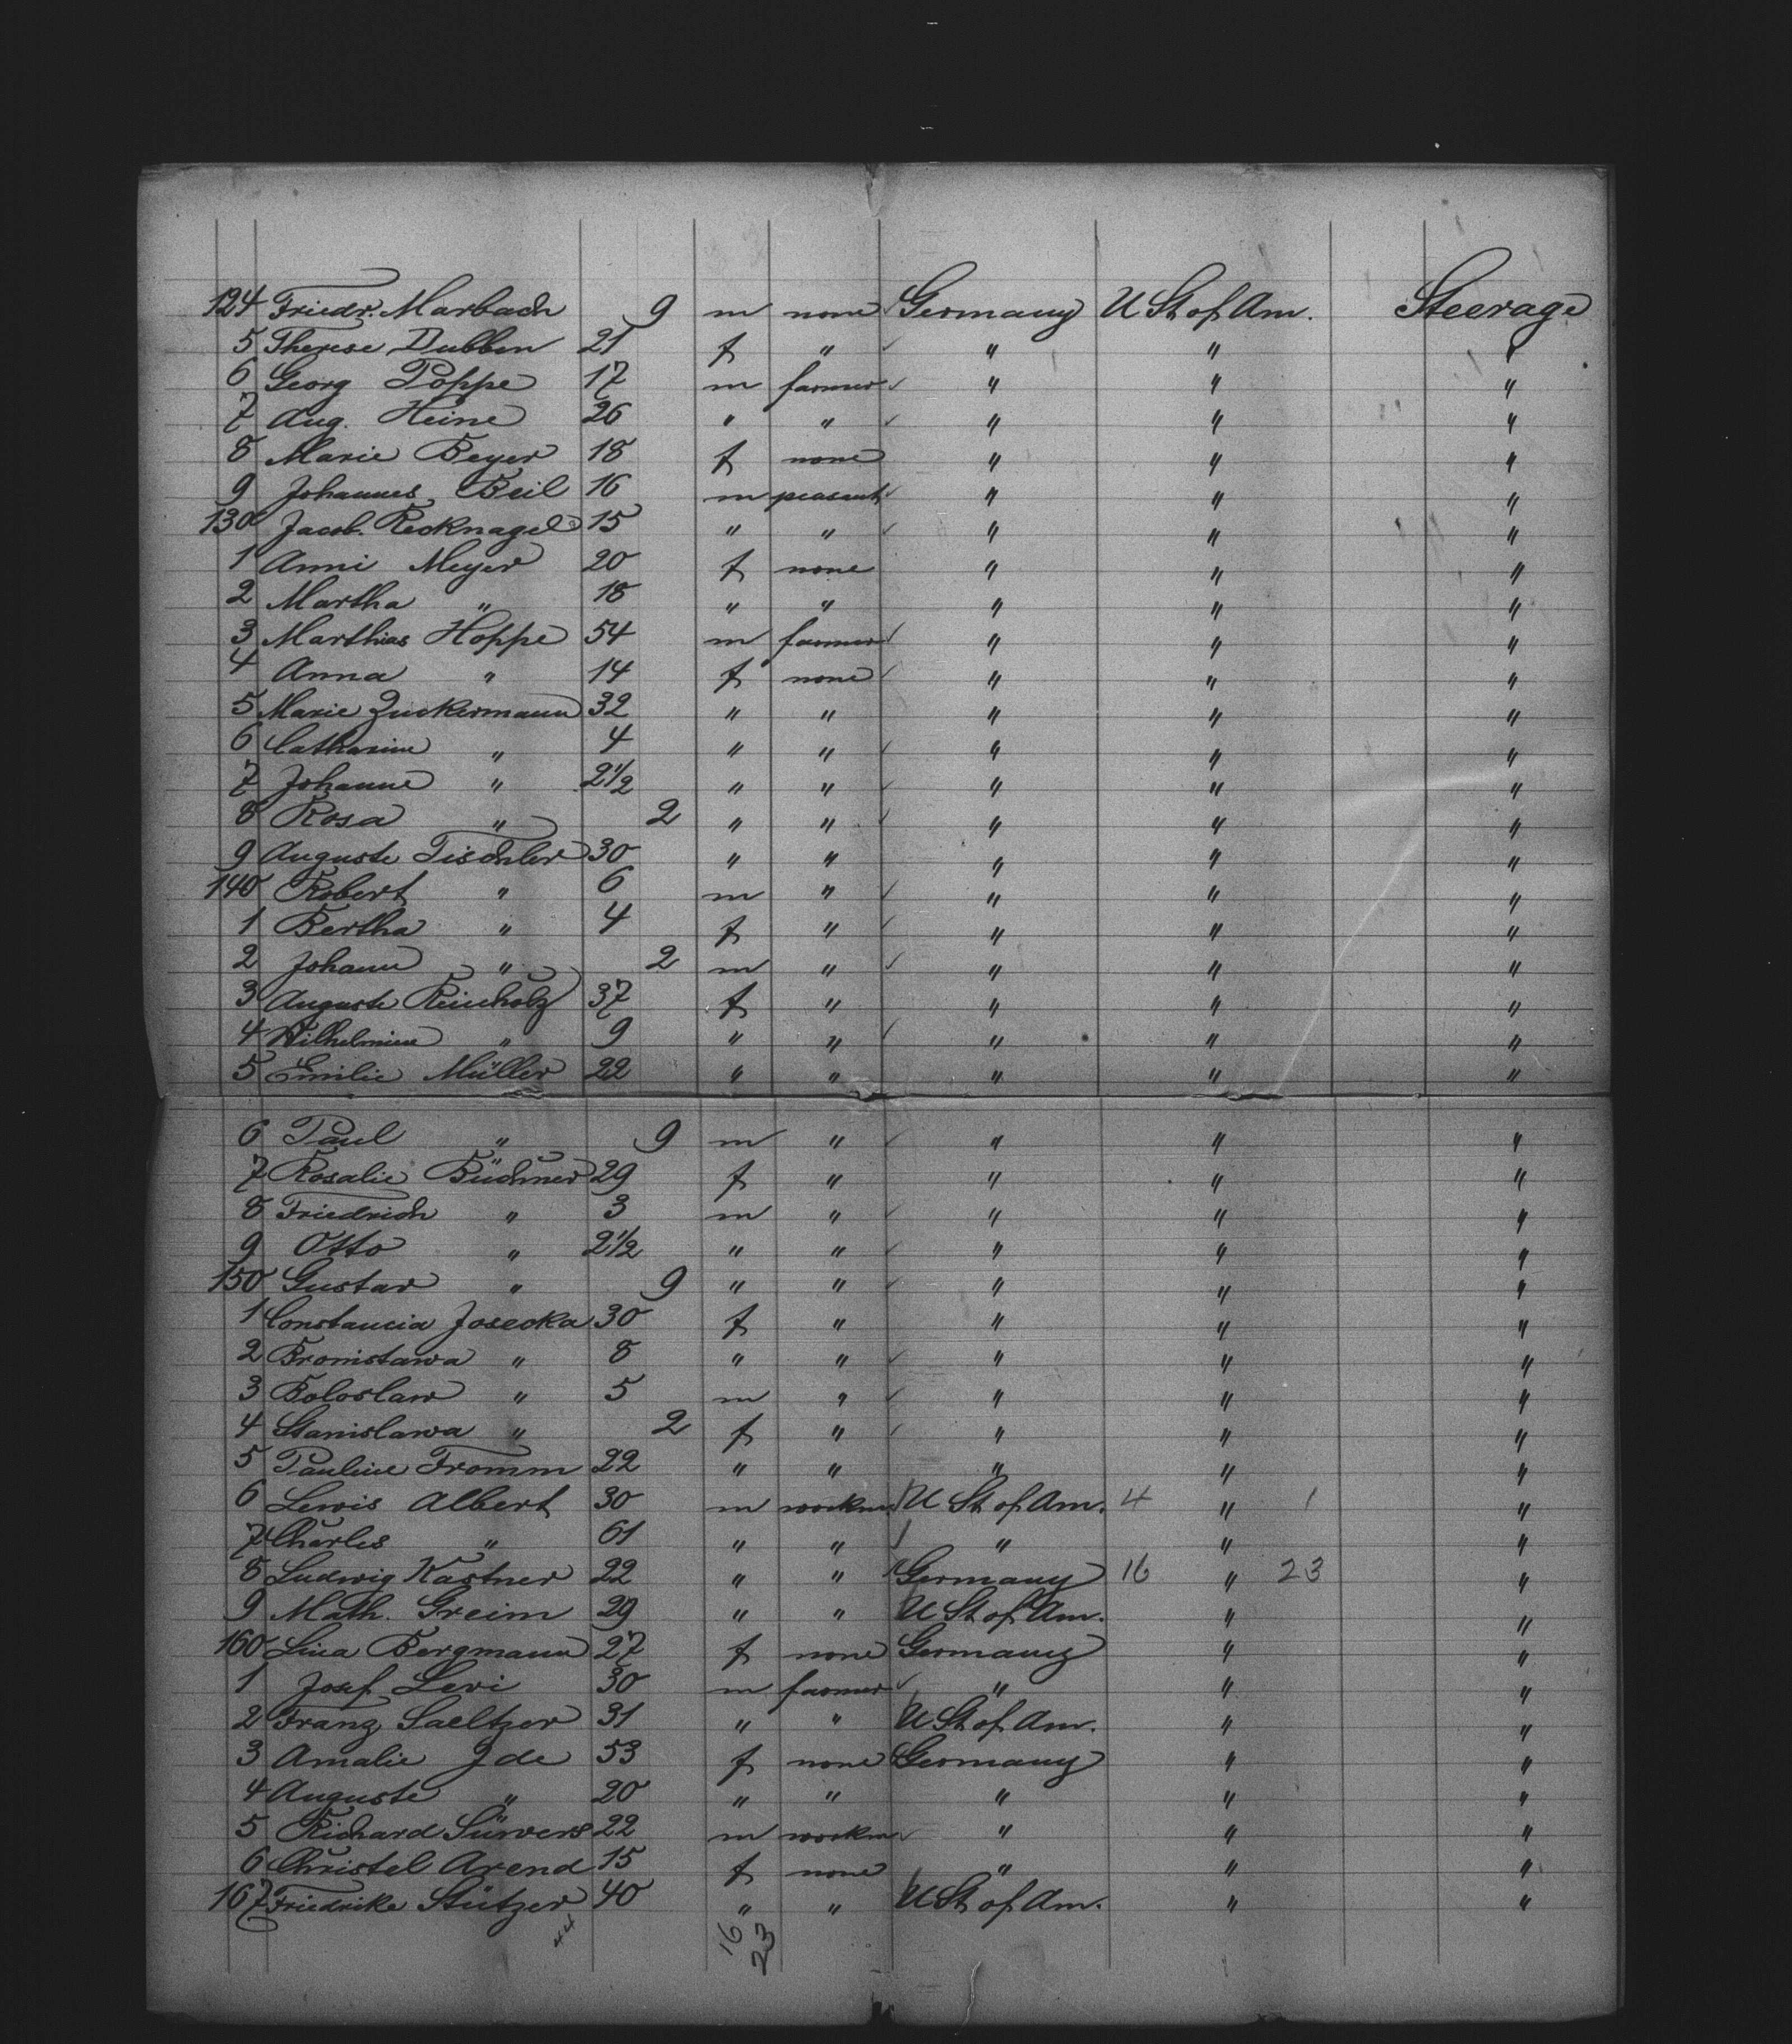 124 Friedr. Marbach 9 m none Germany U St of Am. Steerage
5 Therese Dubben 21 f " " " "
6 Georg Poppe 17 m farmer " " "
7 Aug. Heine 26 " " " " "
8 Marie Beyer 18 f none " " "
9 Johannes Beil 16 m peasant " " "
130 Jacob. Recknagel 15 " " " " "
1 Anni Meyer 20 f none " " "
2 Martha " 18 " " " " "
3 Marthias Hoppe 54 m farmer " " "
4 Anna " 14 f none " " "
5 Marie Zuckermann 32 " " " " "
6 Catharine " 4 " " " " "
7 Johanne " 2 1/2 " " " " "
8 Rosa " 2 " " " " "
9 Auguste Tischler 30 " " " " "
140 Robert " 6 m " " " "
1 Bertha " 4 f " " " "
2 Johann " 2 m " " " "
3 Auguste Reinholz 37 f " " " "
4 Wilhelmine " 9 " " " " "
5 Emilie Müller 22 " " " " "
6 Paul " 9 m " " " "
7 Rosalie Büchner 29 f " " " "
8 Friedrich " 3 m " " " "
9 Otto " 2 1/2 " " " " "
150 Gustav " 9 " " " " "
1 Constancia Josecka 30 f " " " "
2 Bronistawa " 8 " " " " "
3 Boloslaw " 5 m " " " "
4 Stanislawa " 2 f " " " "
5 Pauline Fromm 22 " " " " "
6 Lewis Albert 30 m workm. U St of Am. 4 " 1 "
7 Charles " 61 " " " " "
8 Ludwig Kastner 22 " " Germany 16 " 23 "
9 Math. Greim 29 " " U St of Am. " "
160 Lina Bergmann 27 f none Germany " "
1 Josef Levi 30 m farmer " " "
2 Franz Saeltzer 31 " " U St of Am. " "
3 Amalie Ide 53 f none Germany " "
4 Auguste " 20 " " " " "
5 Richard Süwers 22 m workm " " "
6 Christel Arend 15 f none " " "
167 Friedrike Stützer 40 " " U St of Am. " "
44 16
23